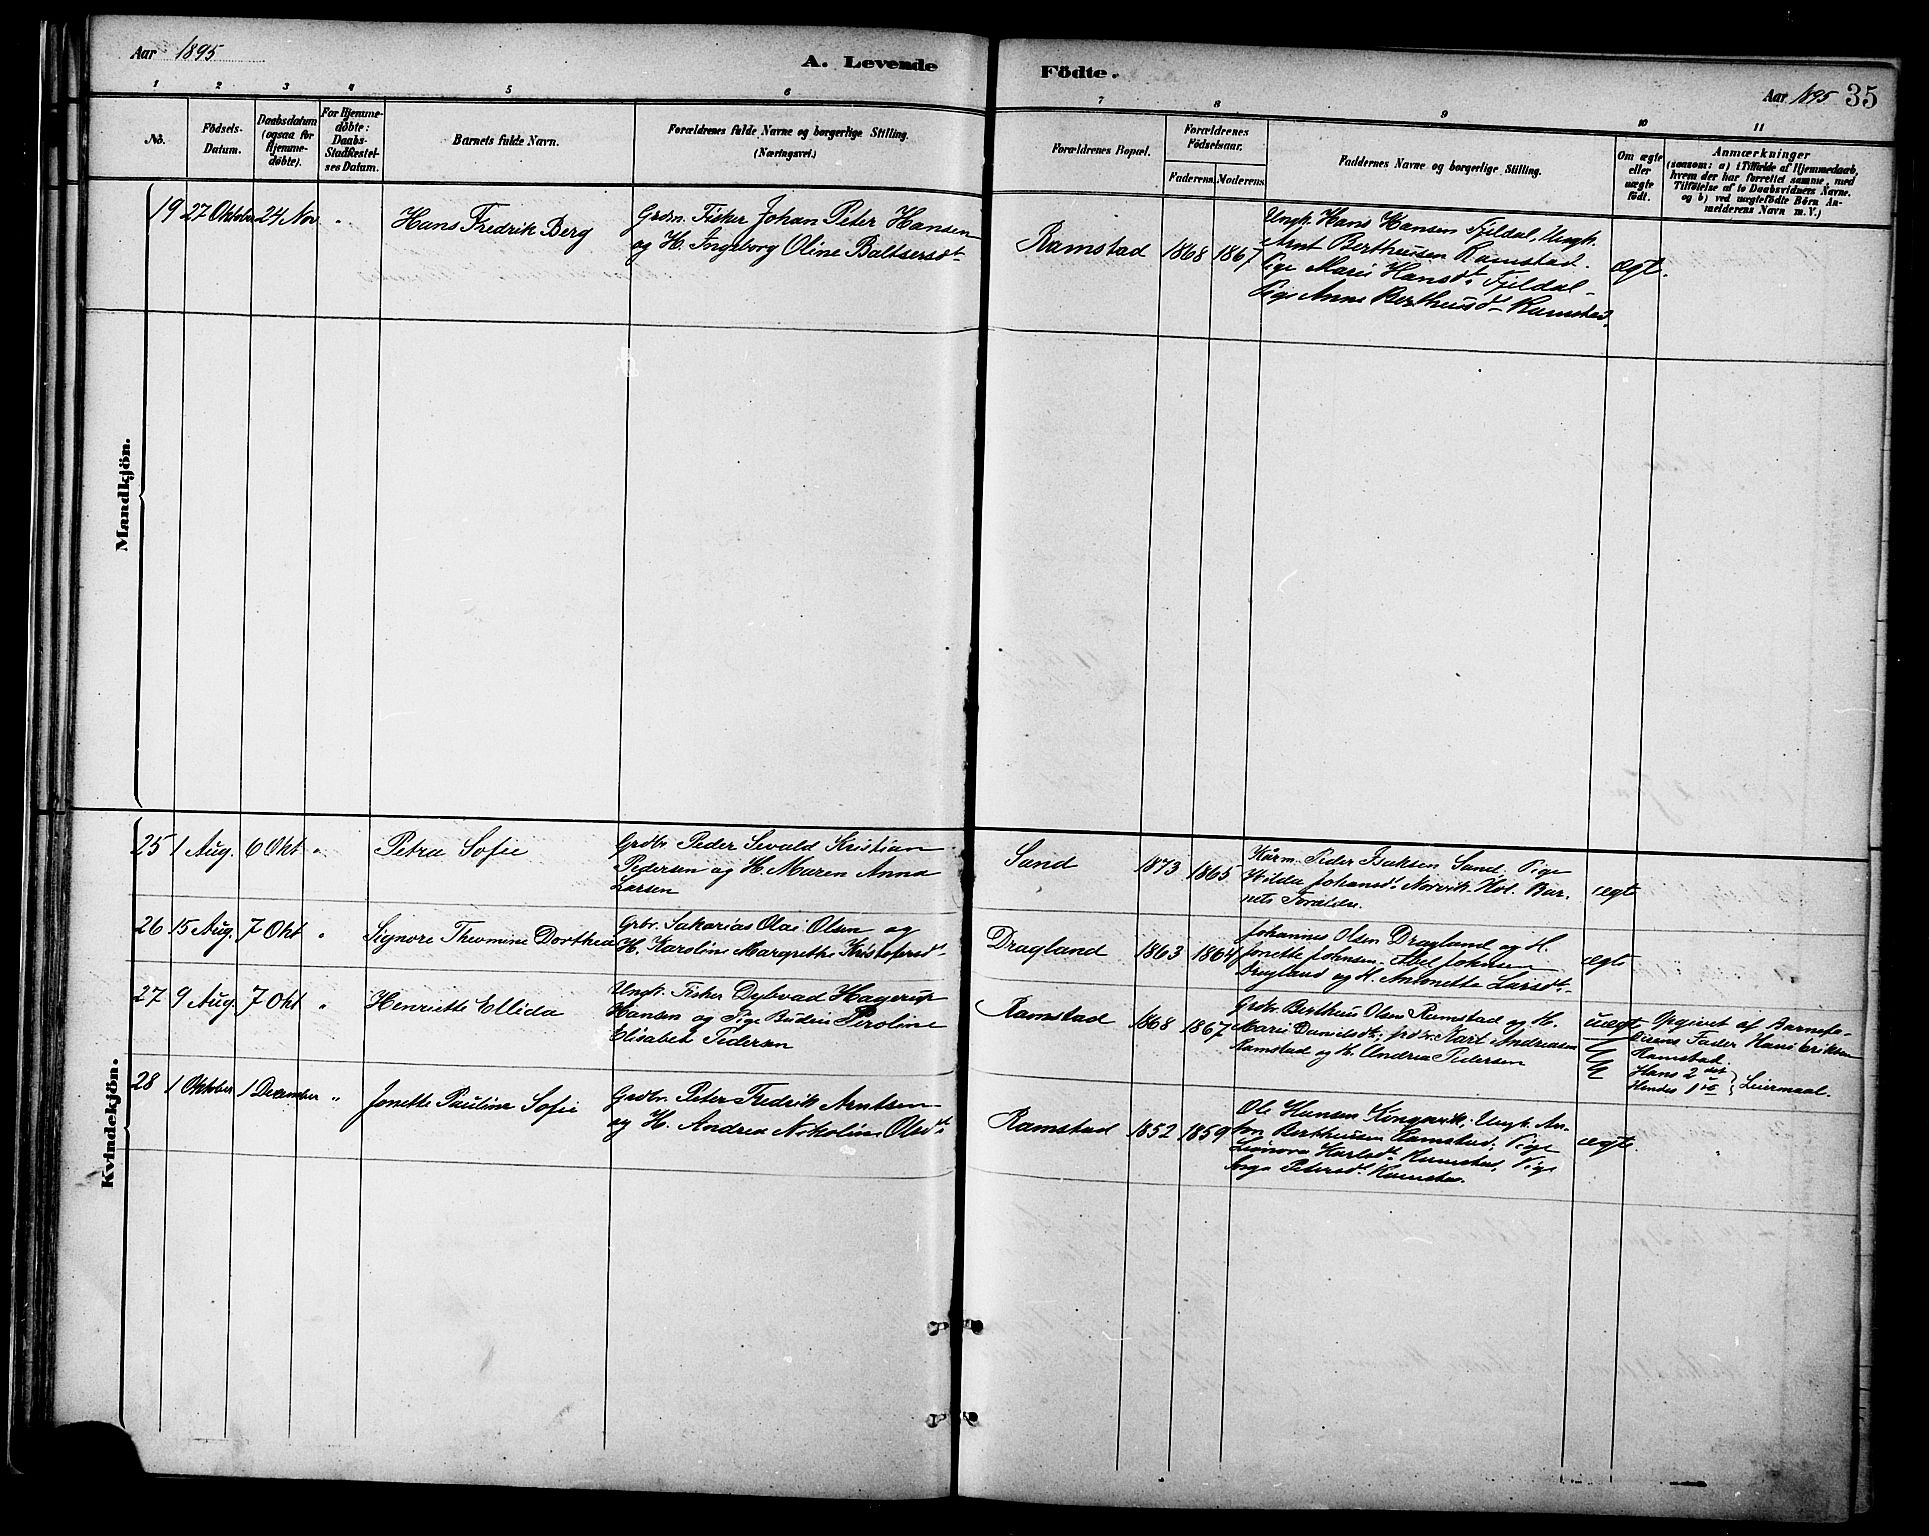 Aar 1895
A. Levende
Födte.
Aar 1895 35
1 2 3 4 5 6 7 8 9 10 11
No.
Födsels-
Datum.
Daabsdatum
(ogsaa for
Hjemme-
døbte).
For Hjemme-
døbte:
Daabs-
Stadfæstel-
ses Datum.
Barnets fulde Navn.
Forældrenes fulde Navne og borgerlige Stilling.
(Næringsvei.)
Forældrenes Bopæl.
Forældrenes
Födselsaar.
Faderens. Moderens.
Faddernes Navne og borgerlige Stilling.
Om ægte
eller
uægte
födt.
Anmærkninger
(saasom: a) i Tilfælde af Hjemmedaab,
hvem der har forrettet samme, med
Tilføielse af to Daabsvidners Navne,
og b) ved uægtefødte Börn An-
melderens Navn m. V.)
Mandkjön.
19 27 Oktober 24 Nov "
Hans Fredrik Berg
Grdn. Fisker Johan Peter Hansen
og H. Ingeborg Oline Baltsersdt
Ramstad 1868 1867
Ungk. Hans Hansen Fjeldal, Ungk.
Arnt Bertheusen Ramstad.
Pige Marie Hansdt Fjeldal –
Pige Anne Bertheusdt Ramstad.
ægt.
Kvindekjön.
25 1 Aug. 6 Okt "
Petra Sofie
Grdbr. Peder Sevald Kristian
Pedersen og H. Maren Anna
Larsen
Sand 1873 1865
Peder Isaksen Sand, Pige
Hilda Johansdt Norvik. Bar-
nets Forældre.
ægte
26 15 Aug. 7 Okt "
Signore Theomine Dorthea
Grbr. Sakarias Olai Olsen og
H. Karoline Margrethe Kristofersdt
Dragland 1863 1864
Johannes Olsen Dragland og H.
Jonette Johnsen. Abel Johnsen
Dragland og H. Antonette Larsdt.
ægte
27 9 Aug. 7 Okt "
Henriette Ellida
Ungk. Fisker Dybvad Hagerup
Hansen og Pige Peroline
Elisabeth Pedersen
Ramstad 1868 1867
Grdbr. Bertheus Olsen Ramstad og H.
Marie Danielsdt; Andreasen
Ramstad og H. Andrea Pedersen
uægte
Opgivet af Barnefa-
derens Fader Hans Eriksen
Ramstad.
Hans 2det
Hendes 1ste } Leiermaal.
28 1 Oktober 1 December "
Jonette Pauline Sofie
Grdbr. Peter Fredrik Arntsen
og H. Andrea Nikoline Olsdt
Ramstad 1852 1859
Ole Hansen Kongsvik, Ungk. An-
ton Bertheusen Ramstad, Pige
Karlsdt Ramstad, Pige
Inga Petersdt Ramstad.
ægte.